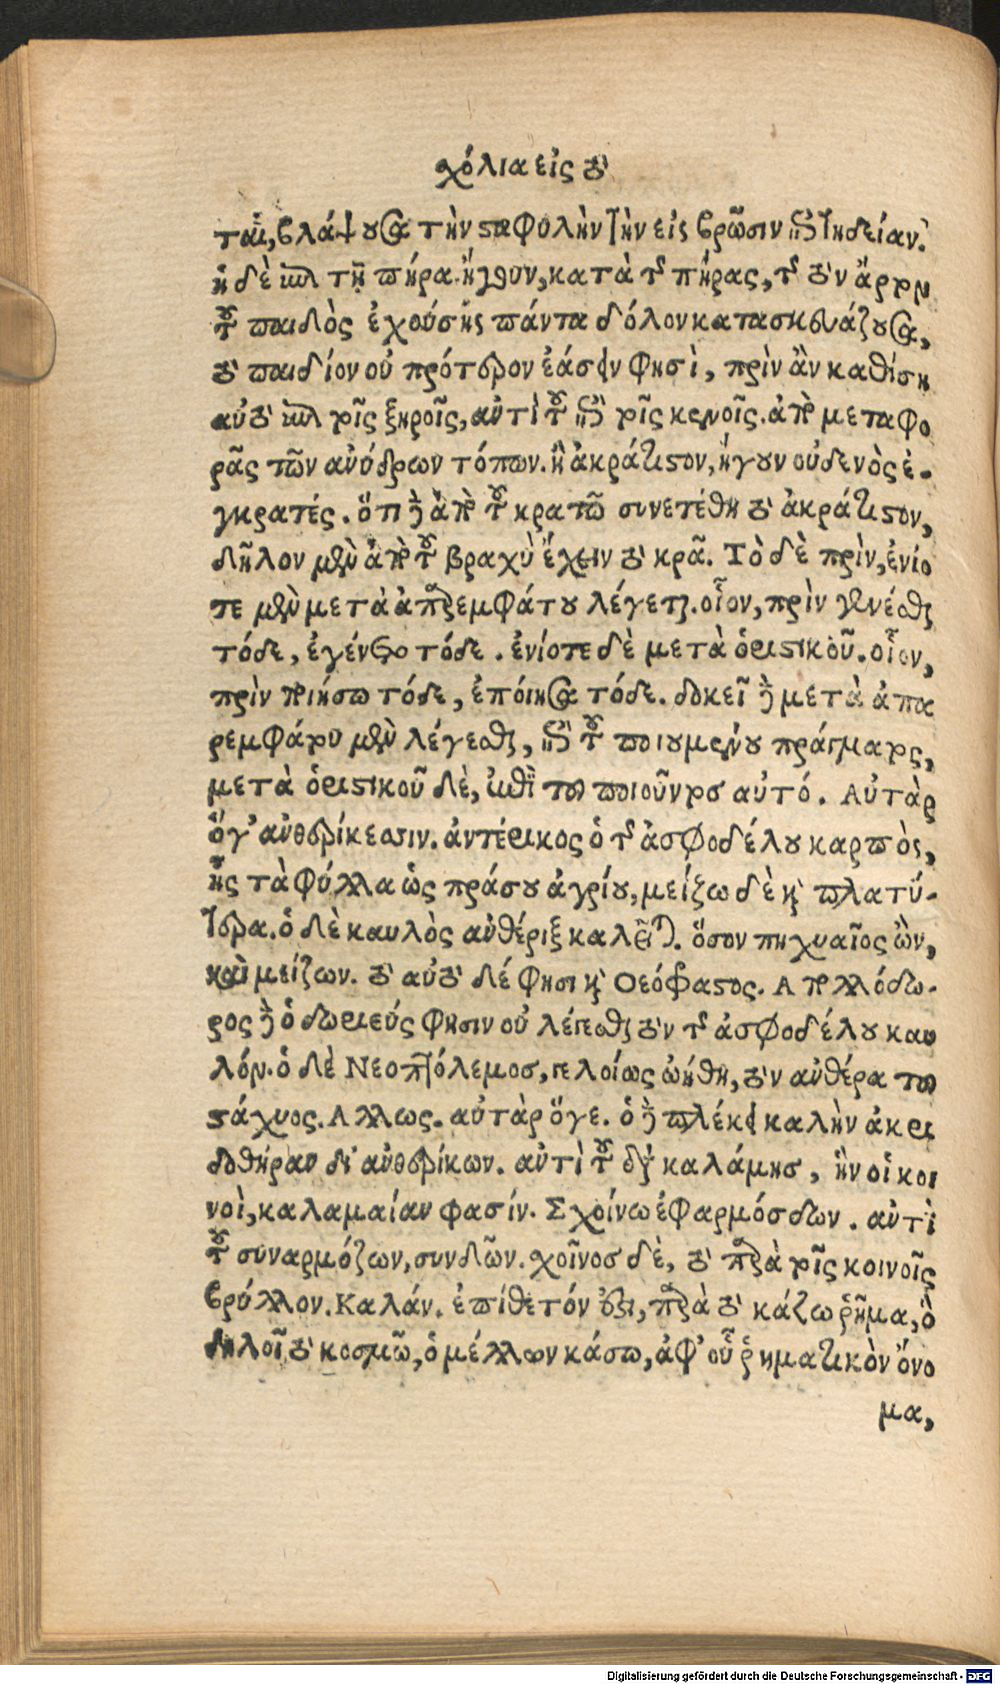 χόλια εἰς τὸ
ται, βλάψουσα τὴν σταφυλὴν τὴν εἰς βρῶσιν ἐπιτηδείαν.
ἡ δὲ ἐπὶ τῇ πήρᾳ. ἤγουν, κατὰ τῆς πήρας, τῆς τὸν ἄρτον
τοῦ παιδὸς ἐχούσης πάντα δόλον κατασκευάζουσα,
τὸ παιδίον οὐ πρότερον ἐάσειν φησὶ, πρὶν ἂν καθίσῃ
αὐτὸ ἐπὶ τοῖς ξηροῖς, αὐτὶ τοῦ ἐπὶ τοῖς κενοῖς. ἀπὸ μεταφο
ρᾶς τῶν ανύδρων τόπων. ἢ ἀκράτιστον, ἤγουν οὐδενὸς ἐ-
γκρατές. ὅτι γὰρ ἀπὸ τοῦ κρατῶ συνετέθη τὸ ἀκράτιστον,
δῆλον μὲν ἀπὸ τοῦ βραχὺ ἔχειν τὸ κρᾶ. Τὸ δὲ πρὶν, ἐνίο
τε μὲν μετὰ ἀπαρεμφάτου λέγεται. οἷον, πρὶν γενέσθαι
τόδε, ἐγένετο τόδε. ἐνίοτε δὲ μετὰ ὁριστικοῦ. οἷον,
πρὶν ποιήσω τόδε, ἐποίησα τόδε. δοκεῖ γὰρ μετὰ ἀπα
ρεμφάτου μὲν λέγεσθαι, ἐπὶ τοῦ ποιουμένου πράγματος,
μετὰ ὁριστικοῦ δὲ, ἐπὶ τοῦ ποιοῦντος αὐτό. Αὐτὰρ
ὅγ' αὐθερίκεσσιν. ἀντέρικος ὁ τοῦ ἀσφοδέλου καρπὸς,
ἧς τὰ φύλλα ὡς πράσου ἀγρίου, μείζω δὲ καὶ πλατύ-
τερα. ὁ δὲ καυλὸς αὐθέριξ καλεῖται. ὅσον πηχυαῖος ὢν,
καὶ μείζων. τὸ αὐτὸ δέ φησι καὶ Θεόφραστος. Απολλόδω-
ρος γὰρ ὁ δωριεύς φησιν οὐ λέγεσθαι τὸν τοῦ ἀσφοδέλου καυ
λόν. ὁ δὲ Νεοπτόλεμος, γελοίως ᾠήθη, τὸν αὐθέρα τοῦ
στάχυος. Αλλως. αὐτὰρ ὅγε. ὁ γὰρ πλέκει καλὴν ἀκρι
δοθήραν δι' αὐθερίκων. αὐτὶ τοῦ διὰ καλάμης, ἣν οἱ κοι
νοὶ, καλαμαίαν φασίν. Σχοίνῳ ἐφαρμόσδων. αὐτὶ
τοῦ συναρμόζων, συνδῶν. σχοῖνος δὲ, τὸ παρὰ τοῖς κοινοῖς
βρύλλον. Καλάν. ἐπίθετόν ἐστι, παρὰ τὸ κάζω ῥῆμα, ὃ
δηλοῖ τὸ κοσμῶ, ὁ μέλλων κάσω, ἀφ' οὗ ῥηματικὸν ὄνο
μα,
Digitalisierung gefördert durch die Deutsche Forschungsgemeinschaft - DFG